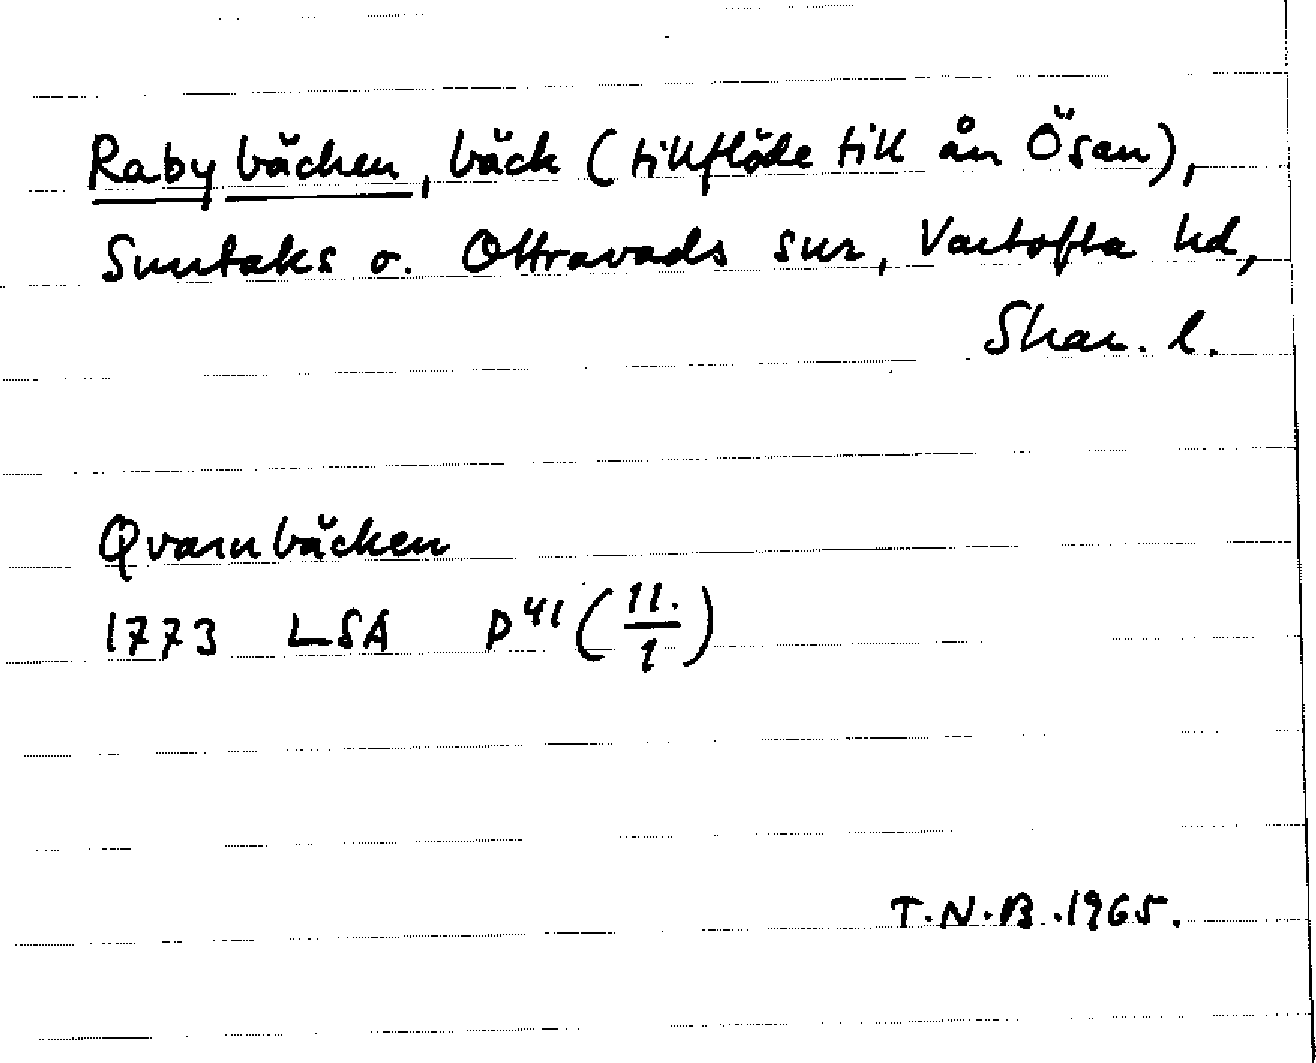 Rabybäcken, bäck (tillflöde till ån Ösan),
Suntaks o. Ottravads snr, Vartofta hd,
Skar. l.
Qvarnbäcken
1773 LSA P⁴¹ (11./1)
T.N.B. 1965.